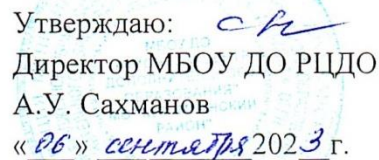 Утверждаю:
Директор МБОУ ДО РЦДО
А.У. Сахманов
« 06 » сентября 2023 г.